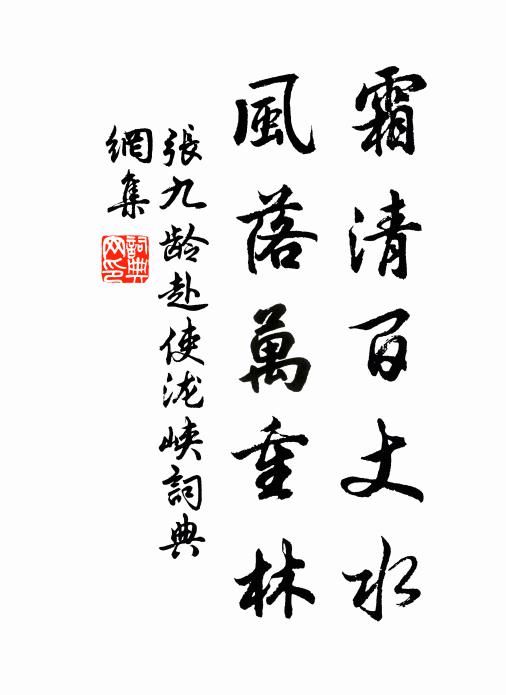 霜清百丈水
風落萬重林
張九龄赴使泷峡詞典
網集
詞典
网印